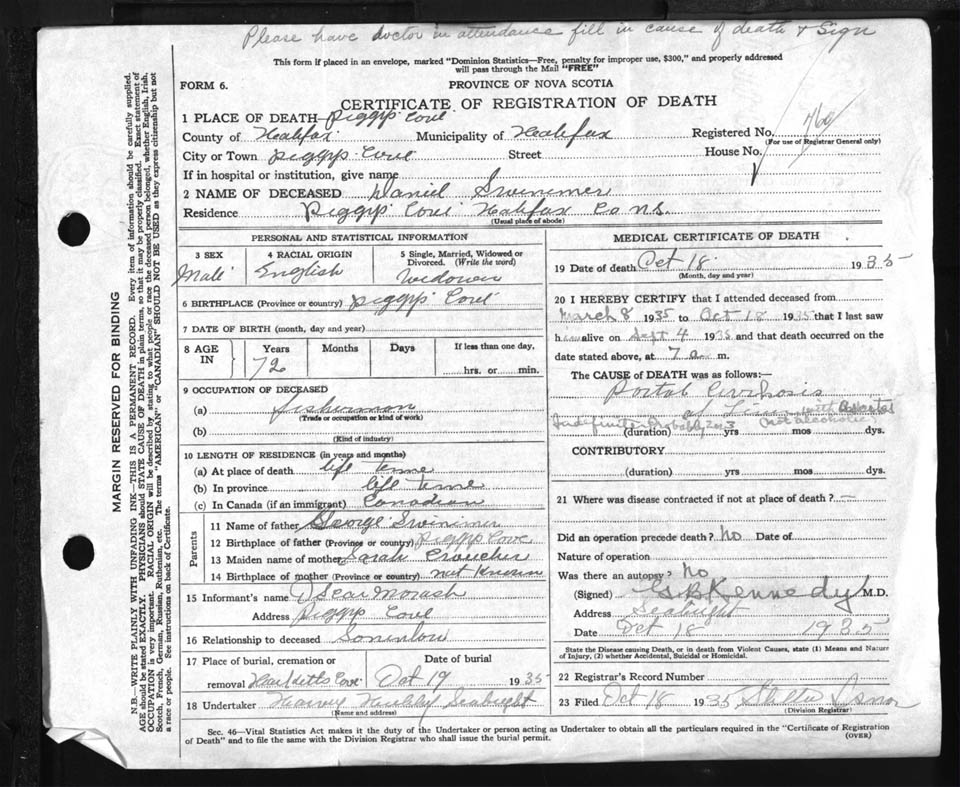 Please have doctor in attendance fill in cause of death & Sign
This form if placed in an envelope, marked "Dominion Statistics—Free, penalty for improper use, $300," and properly addressed
will pass through the Mail "FREE"
FORM 6.
PROVINCE OF NOVA SCOTIA
CERTIFICATE OF REGISTRATION OF DEATH
1 PLACE OF DEATH— Peggys Cove
County of Halifax Municipality of Halifax Registered No.
(For use of Registrar General only)
City or Town Peggys Cove Street House No.
If in hospital or institution, give name
2 NAME OF DECEASED Daniel Swinimer
Residence Peggys Cove Halifax Co N.S.
(Usual place of abode)
PERSONAL AND STATISTICAL INFORMATION
3 SEX Male
4 RACIAL ORIGIN English
5 Single, Married, Widowed or Divorced. (Write the word) Widower
6 BIRTHPLACE (Province or country) Peggys Cove
7 DATE OF BIRTH (month, day and year)
8 AGE IN Years Months Days If less than one day,
72 hrs. or min.
9 OCCUPATION OF DECEASED
(a) fisherman
(Trade or occupation or kind of work)
(b)
(Kind of industry)
10 LENGTH OF RESIDENCE (in years and months)
(a) At place of death life time
(b) In province life time
(c) In Canada (if an immigrant) Canadian
Parents
11 Name of father George Swinimer
12 Birthplace of father (Province or country) Peggys Cove
13 Maiden name of mother Sarah Croucher
14 Birthplace of mother (Province or country) not known
15 Informant's name Oscar Morash
Address Peggys Cove
16 Relationship to deceased Soninlaw
17 Place of burial, cremation or Date of burial
removal Hacketts Cove Oct 19 1935
18 Undertaker Harvey Hubley Seabright
(Name and address)
MEDICAL CERTIFICATE OF DEATH
19 Date of death Oct 18 1935
(Month, day and year)
20 I HEREBY CERTIFY that I attended deceased from
March 8 1935 to Oct 18 1935 that I last saw
him alive on Sept 4 1935 and that death occurred on
the date stated above, at 7 a. m.
The CAUSE of DEATH was as follows:—
Portal Cirrhosis
of Liver with Ascites
Indefinite Probably 2 or 3 not alcoholic
(duration) yrs mos dys.
CONTRIBUTORY
(duration) yrs mos dys.
21 Where was disease contracted if not at place of death? —
Did an operation precede death? No Date of
Nature of operation
Was there an autopsy? No
(Signed) G B Kennedy M.D.
Address Seabright
Date Oct 18 1935
State the Disease causing Death, or in death from Violent Causes, state (1) Means and Nature
of Injury, (2) whether Accidental, Suicidal or Homicidal.
22 Registrar's Record Number
23 Filed Oct 18 1935
(Division Registrar)
Sec. 46—Vital Statistics Act makes it the duty of the Undertaker or person acting as Undertaker to obtain all the particulars required in the "Certificate of Registration
of Death" and to file the same with the Division Registrar who shall issue the burial permit.
(OVER)
MARGIN RESERVED FOR BINDING
N.B.—WRITE PLAINLY WITH UNFADING INK—THIS IS A PERMANENT RECORD. Every item of information should be carefully supplied.
AGE should be stated EXACTLY. PHYSICIANS should STATE CAUSE OF DEATH in plain terms, so that it may be properly classified. Exact statement of
OCCUPATION is very important. RACIAL ORIGIN will be described by stating to what people or race the deceased person belonged, whether English, Irish,
Scotch, French, German, Russian, Ruthenian, etc. The terms "AMERICAN" or "CANADIAN" SHOULD NOT BE USED as they express citizenship but not
a race or people. See instructions on back of Certificate.